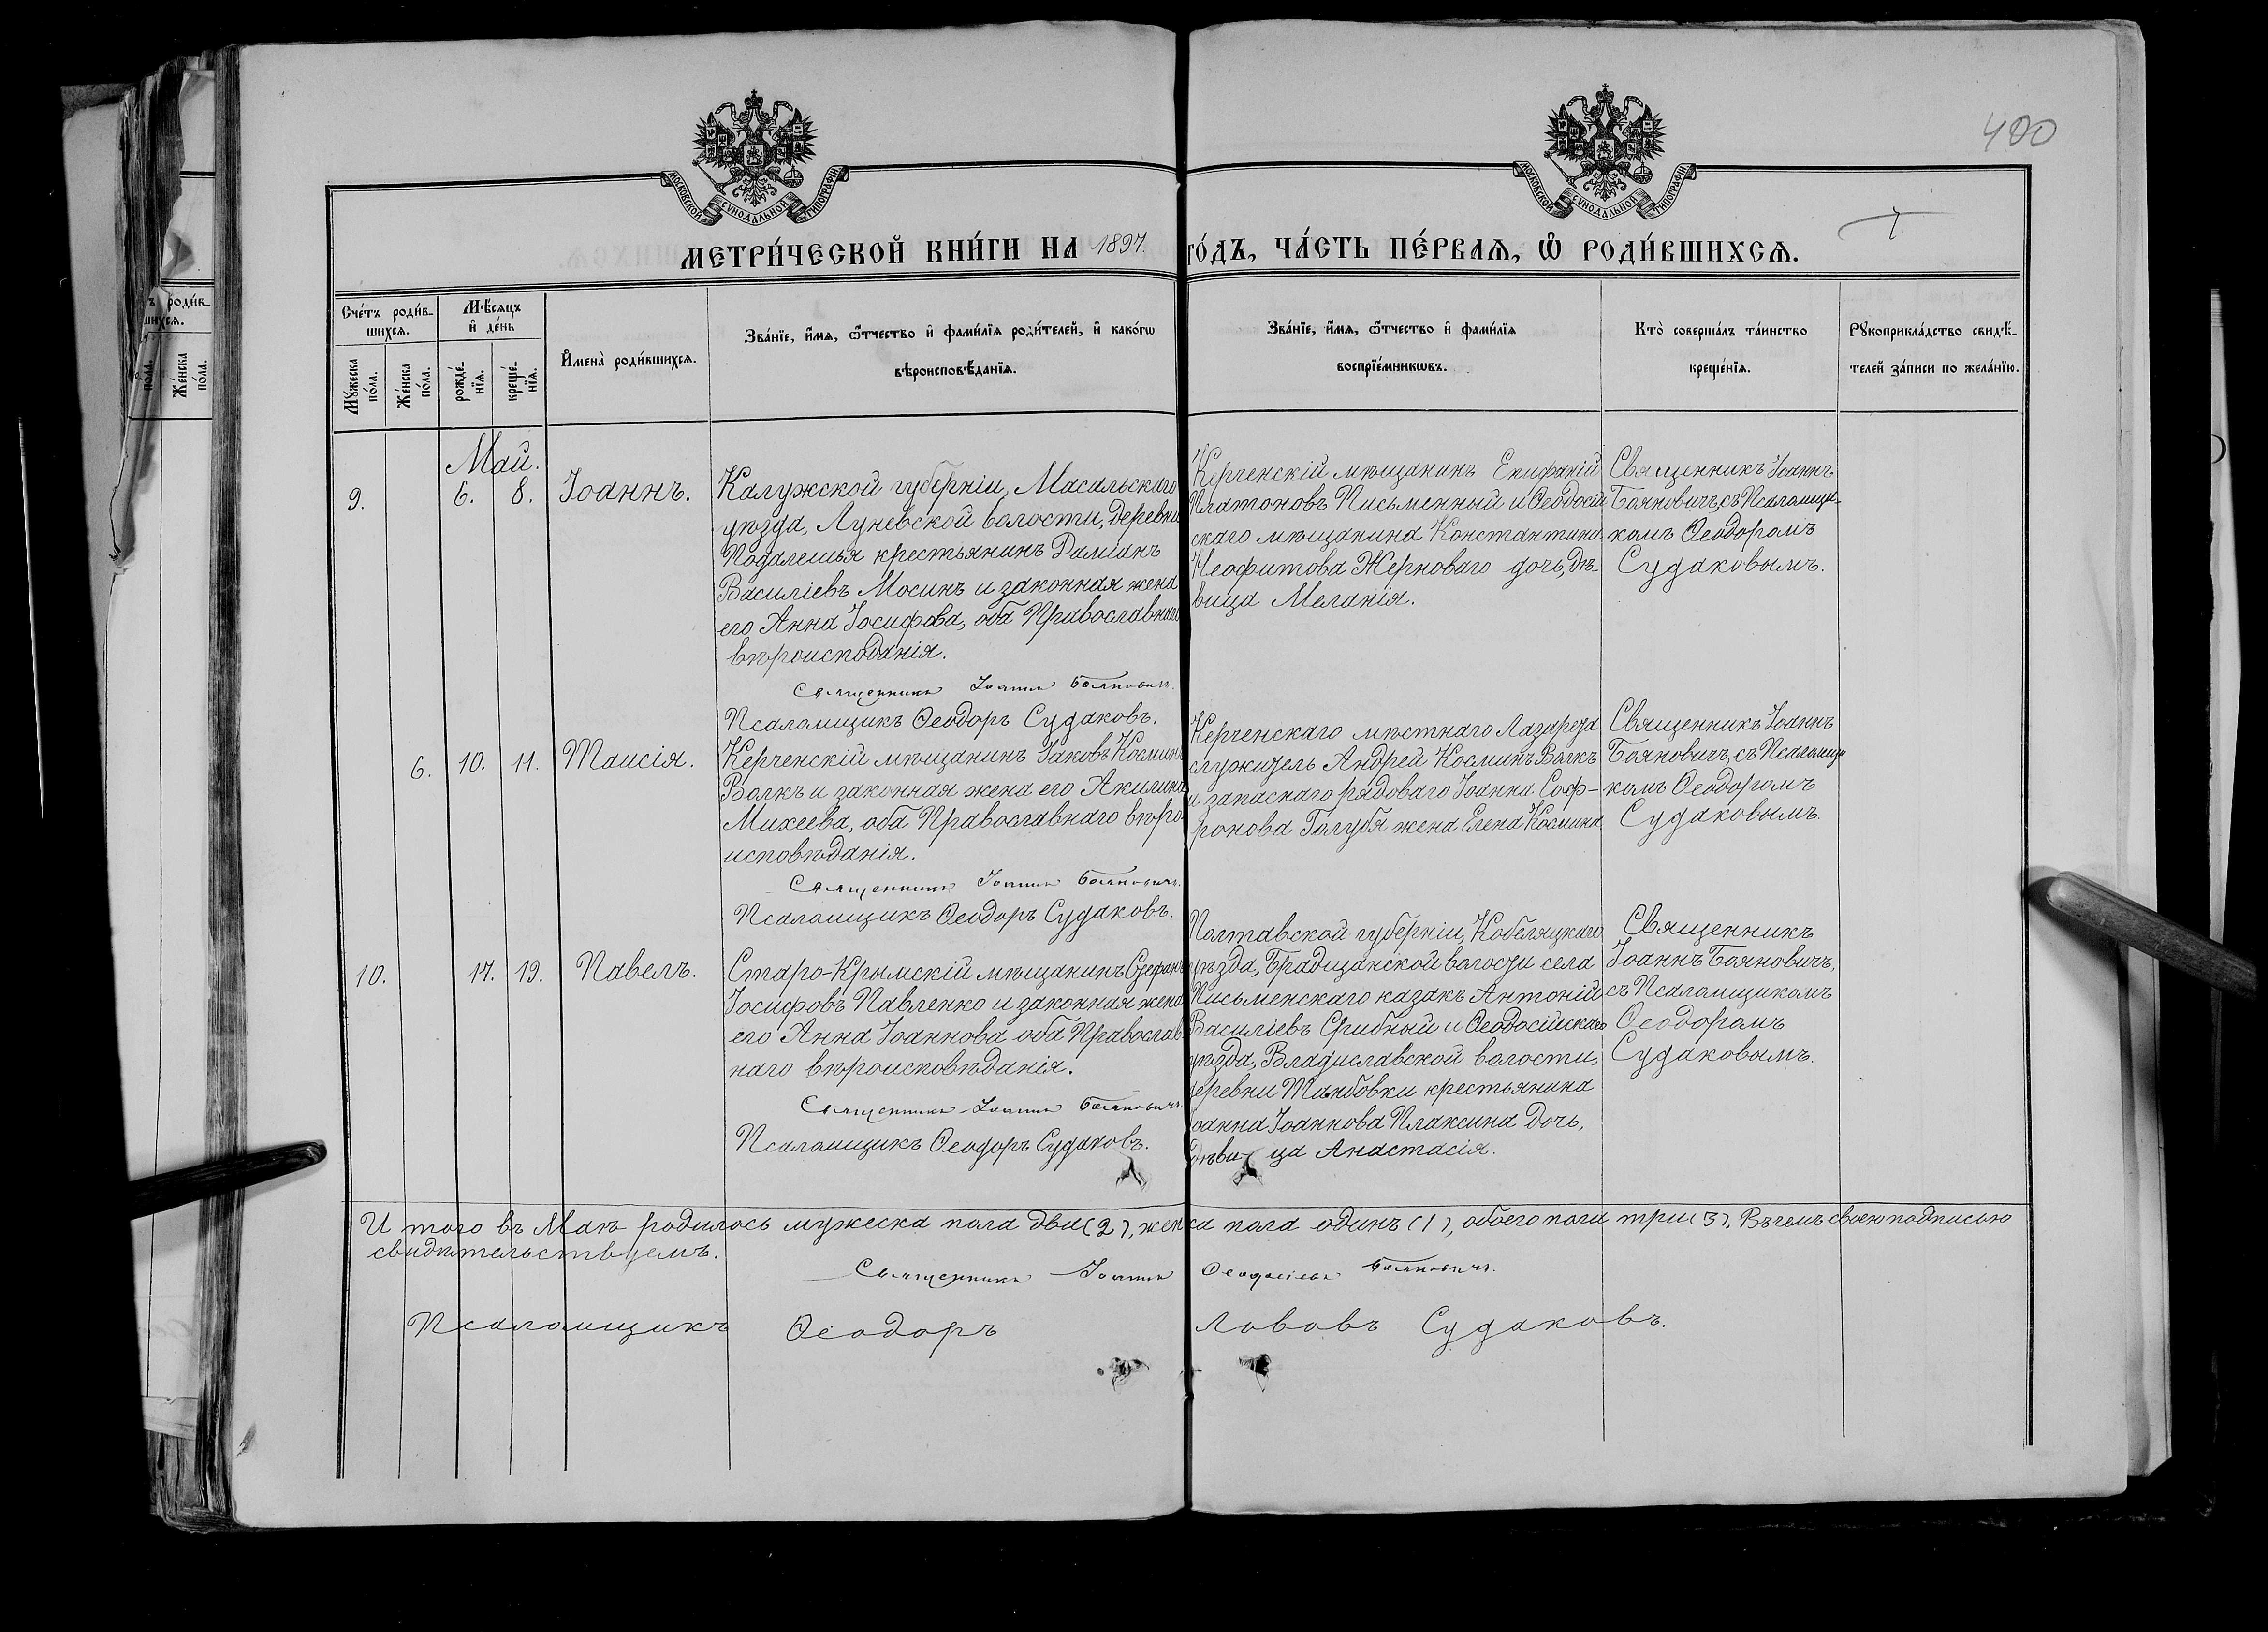 400
МОСКОВСКОЙ СУНОДАЛЬНОЙ ТИПОГРАФІИ
МОСКОВСКОЙ СУНОДАЛЬНОЙ ТИПОГРАФІИ
МЕТРИ́ЧЕСКОЙ КНИ́ГИ НА 1897. ГО́ДЪ, ЧА́СТЬ ПЕ́РВАѦ, Ѡ҆ РОДИ́ВШИХСѦ.
Сче́тъ роди́в-
шихсѧ.
Мѣ́сѧцъ
и҆ де́нь
Мꙋжеска
по́ла.
Же́нска
по́ла.
рожде́-
нїѧ.
креще́-
нїѧ.
И҆мена̀ роди́вшихсѧ.
Зва́нїе, и҆́мѧ, ѻ҆́тчество и҆ фами́лїѧ роди́телей, и҆ како́гѡ
вѣроисповѣ́данїѧ.
Зва́нїе, и҆́мѧ, ѻ҆́тчество и҆ фами́лїѧ
воспрїе́мникѡвъ.
Кто̀ соверша́лъ та́инство
креще́нїѧ.
Рꙋкоприкла́дство свидѣ́-
телей за́писи по жела́нїю.
ъ роди́в-
шихсѧ.
по́ла.
Же́нска
по́ла.
Май.
9. 6. 8. Іоаннъ.
Калужской губерніи, Масальскаго
уѣзда, Луневской волости, деревни
Подалешья крестьянинъ Даміанъ
Василіевъ Мосинъ и законная жена
его Анна Іосифова, оба Православнаго
вѣроисподанія.
Священникъ Іоаннъ Бояновичъ.
Псаломщикъ Ѳеодоръ Судаковъ.
Керченскій мѣщанинъ Епифаній
Платоновъ Письменный и Ѳеодосій
скаго мѣщанина Константина
Неофитова Жерноваго дочь, дѣ-
вица Меланія.
Священникъ Іоаннъ
Бояновичъ, съ Псаломщи-
комъ Ѳеодоромъ
Судаковымъ.
6. 10. 11. Таисія.
Керченскій мѣщанинъ Іаковъ Косминъ
Волкъ и законная жена его Акилина
Михеева, оба Православнаго вѣро
исповѣданія.
Священникъ Іоаннъ Бояновичъ.
Псаломщикъ Ѳеодоръ Судаковъ.
Керченскаго мѣстнаго Лазарета
служитель Андрей Косминъ Волкъ
и запаснаго рядоваго Іоанна Соф-
ронова Голубя жена Елена Космина
Священникъ Іоаннъ
Бояновичъ, съ Псаломщи
комъ Ѳеодоромъ
Судаковымъ.
10. 17. 19. Павелъ.
Старо-Крымскій мѣщанинъ Стефанъ
Іосифовъ Павленко и законная жена
его Анна Іоаннова оба Православ
наго вѣроисповѣданія.
Священникъ Іоаннъ Бояновичъ.
Псаломщикъ Ѳеодоръ Судаковъ.
Полтавской губерніи, Кобеляцкаго
уѣзда, Брадщанской волости села
Письменскаго казакъ Антоній
Василіевъ Срибный и Ѳеодосійскаго
уѣзда, Владиславской волости,
деревни Тамбовки крестьянина
Іоанна Іоаннова Плаксина дочь,
дѣви- ца Анастасія.
Священникъ
Іоаннъ Бояновичъ,
съ Псаломщикомъ
Ѳеодоромъ
Судаковымъ.
И того въ Маѣ родилось мужеска пола два (2), женска пола одинъ (1), обоего пола три (3). Въ чемъ своею подписью
свидѣтельствуемъ.
Священникъ Іоаннъ Ѳеодосіевъ Бояновичъ.
Псаломщикъ Ѳеодоръ Лововъ Судаковъ.